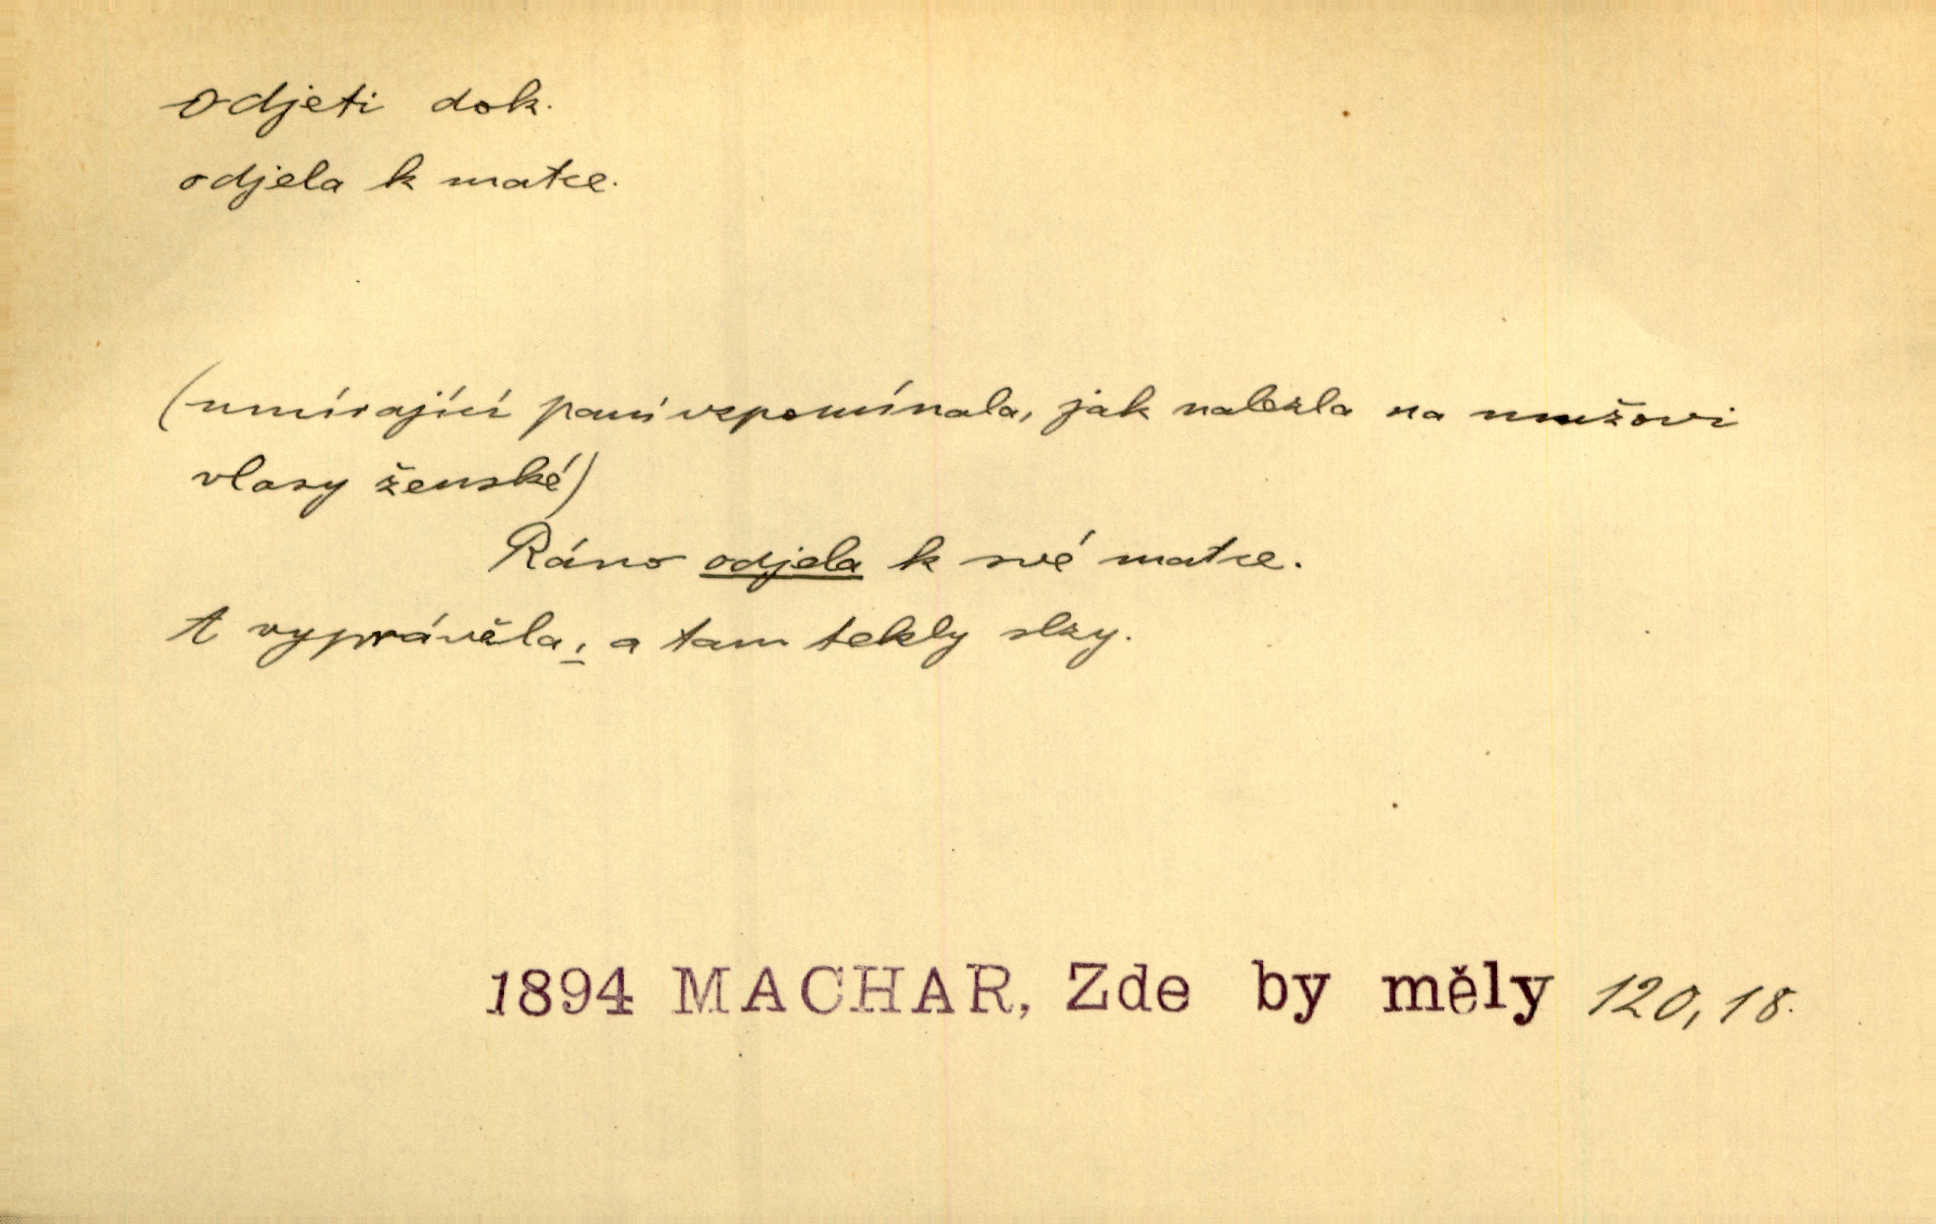 odjeti dok.
odjela k matce.
(umírající paní vzpomínala, jak nalezla na mužovi
vlasy ženské)
Ráno odjela k své matce.
A vyprávěla, a tam tekly slzy.
1894 MACHAR, Zde by měly 120, 18.